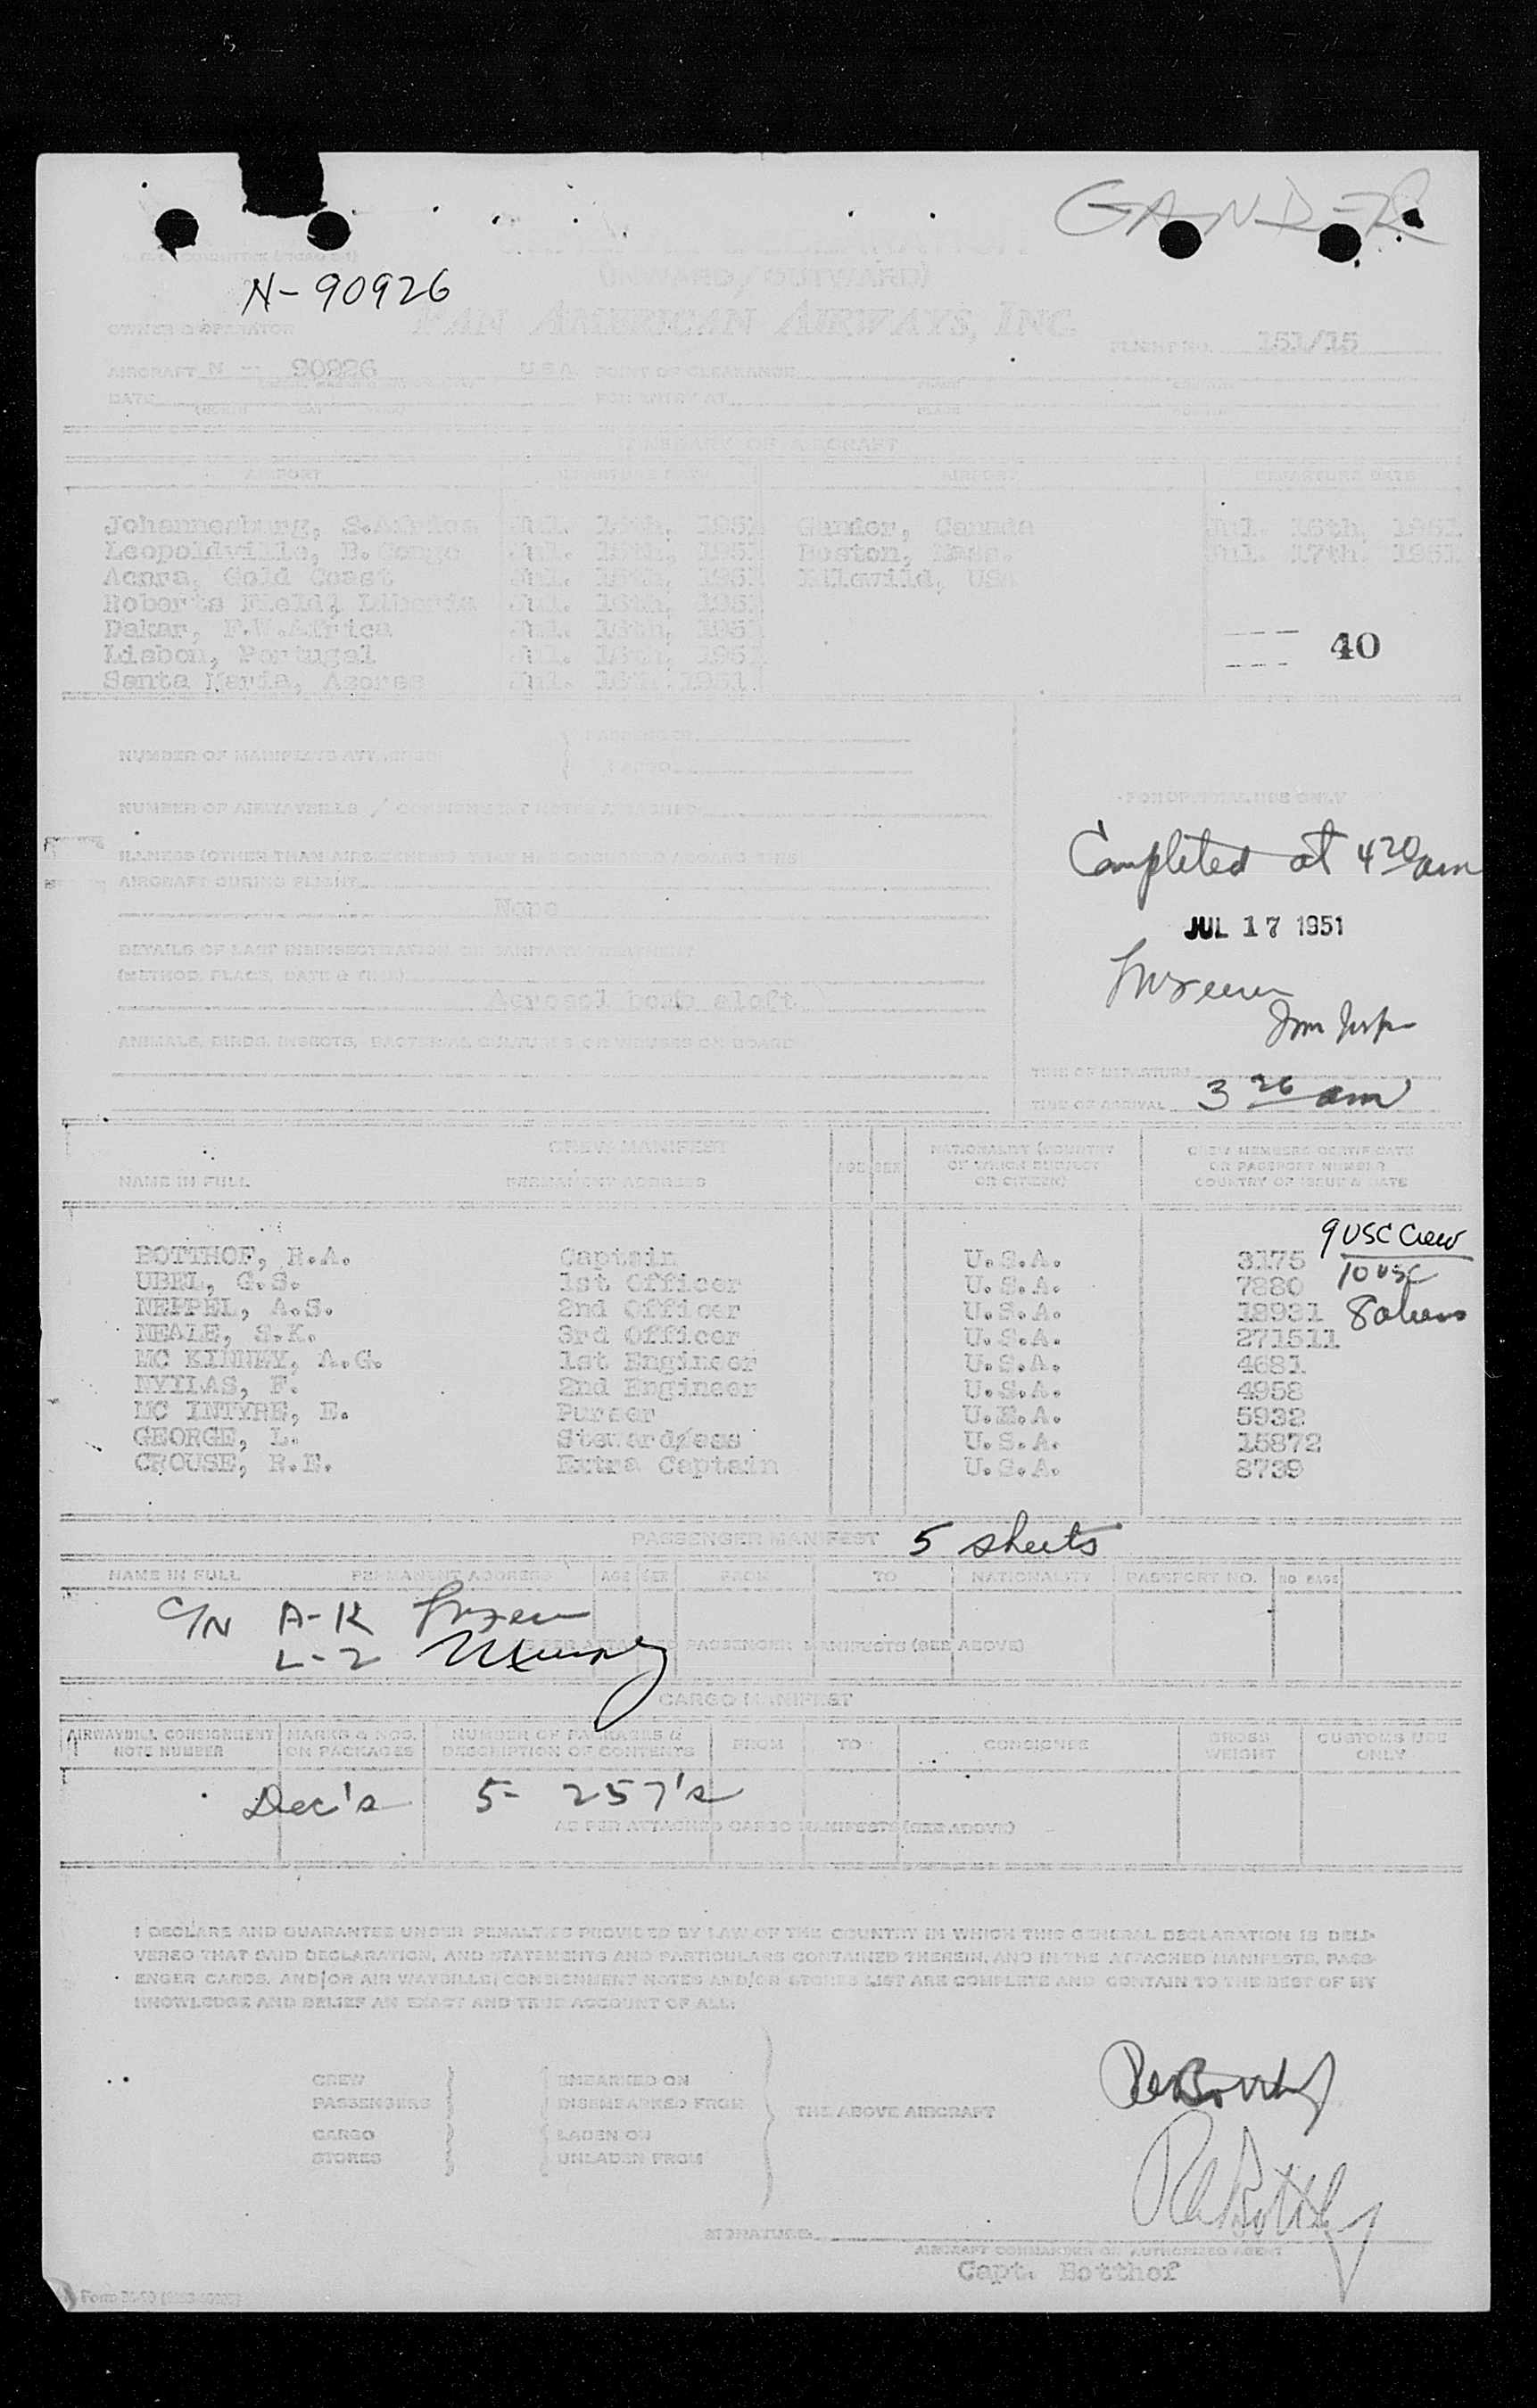 GANDER
(INWARD/OUTWARD)
N-90926
PAN AMERICAN AIRWAYS, INC
OWNER OR OPERATOR
FLIGHT NO. 151/15
AIRCRAFT N - 90926 U.S.A. POINT OF CLEARANCE
PLACE
DATE FOR ENTRY AT
PLACE
ITINERARY OF AIRCRAFT
AIRPORT DEPARTURE DATE AIRPORT DEPARTURE DATE
Johannesburg, S.Africa Jul. 1951 Gander, Canada Jul. 16th, 1951
Leopoldville, B. Congo Jul. 1951 Boston, Mass. Jul. 17th. 1951
Accra, Gold Coast Jul. 1951 Idlewild, USA
Roberts Field, Liberia Jul. 16th, 1951
Dakar, F.W.Africa Jul. 16th, 1951
Lisbon, Portugal Jul. 16th, 1951
40
Santa Maria, Azores Jul. 16th. 1951
PASSENGER
NUMBER OF MANIFESTS ATTACHED
CARGO
FOR OFFICIAL USE ONLY
NUMBER OF AIRWAYBILLS / CONSIGNMENT NOTES ATTACHED
Completed at 4 20 am
ILLNESS (OTHER THAN AIRSICKNESS) THAT HAS OCCURRED ABOARD THIS
AIRCRAFT DURING FLIGHT
None
JUL 17 1951
DETAILS OF LAST DISINSECTIZATION OR SANITARY TREATMENT
(METHOD, PLACE, DATE & TIME)
Aerosol bomb aloft
ANIMALS, BIRDS, INSECTS, BACTERIAL CULTURES OR VIRUSES ON BOARD
TIME OF DEPARTURE
TIME OF ARRIVAL 3 26 am
CREW MANIFEST
NAME IN FULL PERMANENT ADDRESS AGE SEX NATIONALITY (COUNTRY OF WHICH SUBJECT OR CITIZEN) CREW MEMBERS CERTIFICATE OR PASSPORT NUMBER COUNTRY OF ISSUE & DATE
9 USC Crew
BOTTHOF, R.A. Captain U.S.A. 3175
10 USC
UBEL, G.S. 1st Officer U.S.A. 7880
NEPPEL, A.S. 2nd Officer U.S.A. 18931
8 aliens
NEALE, S.K. 3rd Officer U.S.A. 271511
MC KINNEY, A.G. 1st Engineer U.S.A. 4681
NYILAS, F. 2nd Engineer U.S.A. 4958
MC INTYRE, E. Purser U.S.A. 5932
GEORGE, L. Steward/ess U.S.A. 15872
CROUSE, R.E. Extra Captain U.S.A. 8739
PASSENGER MANIFEST 5 sheets
NAME IN FULL PERMANENT ADDRESS AGE SEX FROM TO NATIONALITY PASSPORT NO. NO BAGS
C/N A-K
L-Z Murphy
AS PER ATTACHED PASSENGER MANIFESTS (SEE ABOVE)
CARGO MANIFEST
AIRWAYBILL CONSIGNMENT NOTE NUMBER MARKS & NOS. ON PACKAGES NUMBER OF PACKAGES & DESCRIPTION OF CONTENTS FROM TO CONSIGNEE GROSS WEIGHT CUSTOMS USE ONLY
Dec's 5- 257's
AS PER ATTACHED CARGO MANIFESTS (SEE ABOVE)
I DECLARE AND GUARANTEE UNDER PENALTIES PROVIDED BY LAW OF THE COUNTRY IN WHICH THIS GENERAL DECLARATION IS DELI-
VERED THAT SAID DECLARATION, AND STATEMENTS AND PARTICULARS CONTAINED THEREIN, AND IN THE ATTACHED MANIFESTS, PASS-
ENGER CARDS, AND/OR AIR WAYBILLS/CONSIGNMENT NOTES AND/OR STORES LIST ARE COMPLETE AND CONTAIN TO THE BEST OF MY
KNOWLEDGE AND BELIEF AN EXACT AND TRUE ACCOUNT OF ALL:
CREW EMBARKED ON
PASSENGERS DISEMBARKED FROM THE ABOVE AIRCRAFT
CARGO LADEN ON
STORES UNLADEN FROM
RA Botthof
RA Botthof
SIGNATURE
AIRCRAFT COMMANDER OR AUTHORIZED AGENT
Capt. Botthof